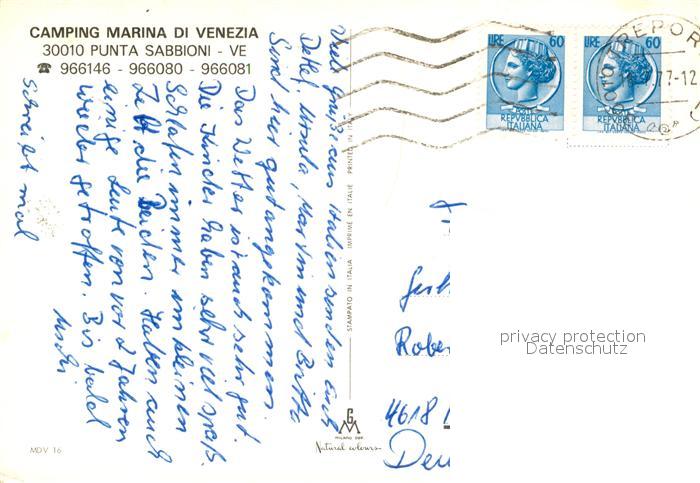 CAMPING MARINA DI VENEZIA
30010 PUNTA SABBIONI - VE
☎ 966146 - 966080 - 966081
Viele Grüße aus Italien senden Euch
Detlef, Ursula, Martin und Britta
Sind hier gut angekommen.
Das Wetter ist auch sehr gut.
Die Kinder haben sehr viel Spaß.
Schlafen immer im kleinen
Zelt die Beiden. Haben auch
einige Leute von vor 2 Jahren
wieder getroffen. Bis bald
Uschi
Schreibt mal
STAMPATO IN ITALIA IMPRIMÉ EN ITALIE PRINTED IN
MDV 16
GM
MILANO
Natural colours
LIRE 60
POSTE
REPVBBLICA
ITALIANA
LIRE 60
REPVBBLICA
ITALIANA
77-12
Rober
4618
Deu
privacy protection
Datenschutz